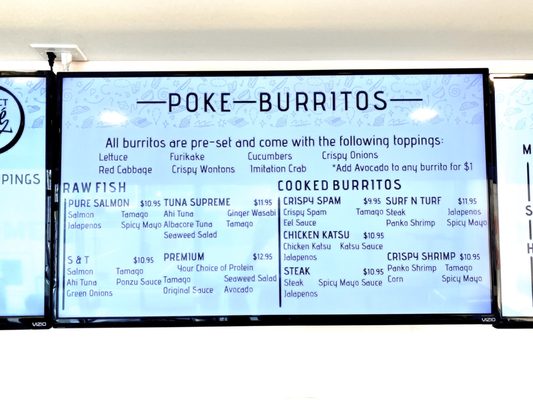 POKE BURRITOS
All burritos are pre-set and come with the following toppings:
Lettuce Furikake Cucumbers Crispy Onions
Red Cabbage Crispy Wontons Imitation Crab *Add Avocado to any burrito for $1
RAW FISH
PURE SALMON $10.95
Salmon Tamago
Jalapenos Spicy Mayo
S & T $10.95
Salmon Tamago
Ahi Tuna Ponzu Sauce
Green Onions
TUNA SUPREME $11.95
Ahi Tuna Ginger Wasabi
Albacore Tuna Tamago
Seaweed Salad
PREMIUM $12.95
Your Choice of Protein
Tamago Seaweed Salad
Original Sauce Avocado
COOKED BURRITOS
CRISPY SPAM $9.95
Crispy Spam Tamago
Eel Sauce
CHICKEN KATSU $10.95
Chicken Katsu Katsu Sauce
Jalapenos
STEAK $10.95
Steak Spicy Mayo Sauce
Jalapenos
SURF N TURF $11.95
Steak Jalapenos
Panko Shrimp Spicy Mayo
CRISPY SHRIMP $10.95
Panko Shrimp Tamago
Corn Spicy Mayo
PPINGS
VIZIO
VIZIO